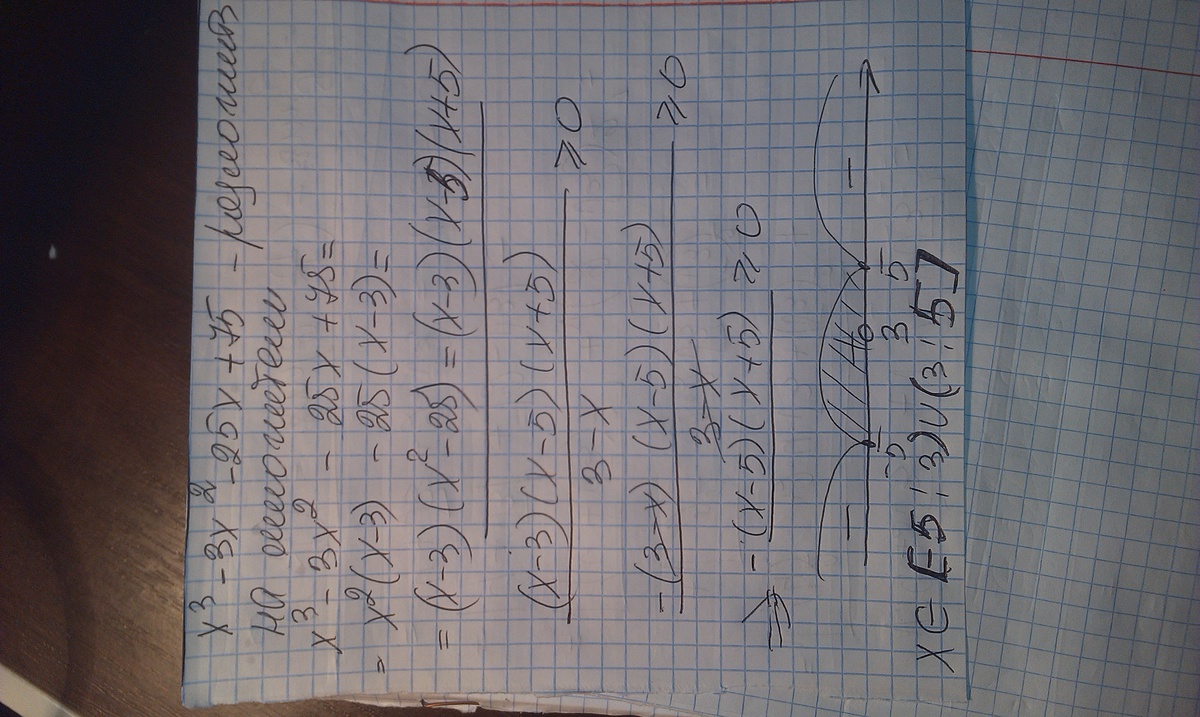 x³ - 3x² - 25x + 75 - разложить
на множители
x³ - 3x² - 25x + 75 =
= x²(x-3) - 25(x-3) =
= (x-3)(x²-25) = (x-3)(x-5)(x+5)
(x-3)(x-5)(x+5)
3-x
≥ 0
-(3-x)(x-5)(x+5)
3-x
≥ 0
⇒ -(x-5)(x+5) ≥ 0
- -
-5 3 5
x ∈ [-5; 3) ∪ (3; 5]